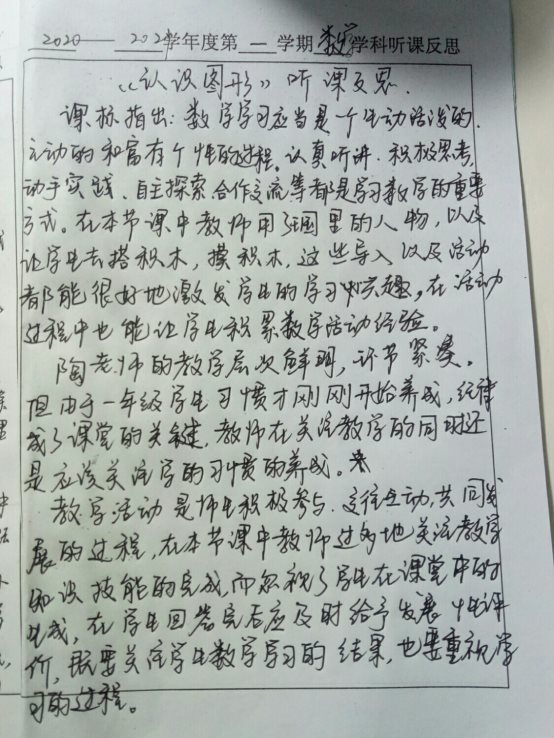 2020 — 2021 学年度第 一 学期 数学 学科听课反思
《认识图形》听课反思
课标指出:数学学习应当是一个生动活泼的、
主动的和富有个性的过程。认真听讲、积极思考、
动手实践、自主探索、合作交流等都是学习数学的重要
方式。在本节课中教师用王国里的人物,以及
让学生去搭积木,摸积木,这些导入以及活动
都能很好地激发学生的学习兴趣,在活动
过程中也能让学生积累数学活动经验。
陶老师的教学层次鲜明,环节紧凑。
但由于一年级学生习惯才刚刚开始养成,纪律
成了课堂的关键,教师在关注教学的同时还
是应该关注学的习惯的养成。
教学活动是师生积极参与、交往互动、共同发
展的过程,在本节课中教师过多地关注教学
知识技能的完成,而忽视了学生在课堂中的
生成,在学生回答完后应及时给予发展性评
价,既要关注学生数学学习的结果,也要重视学
习的过程。